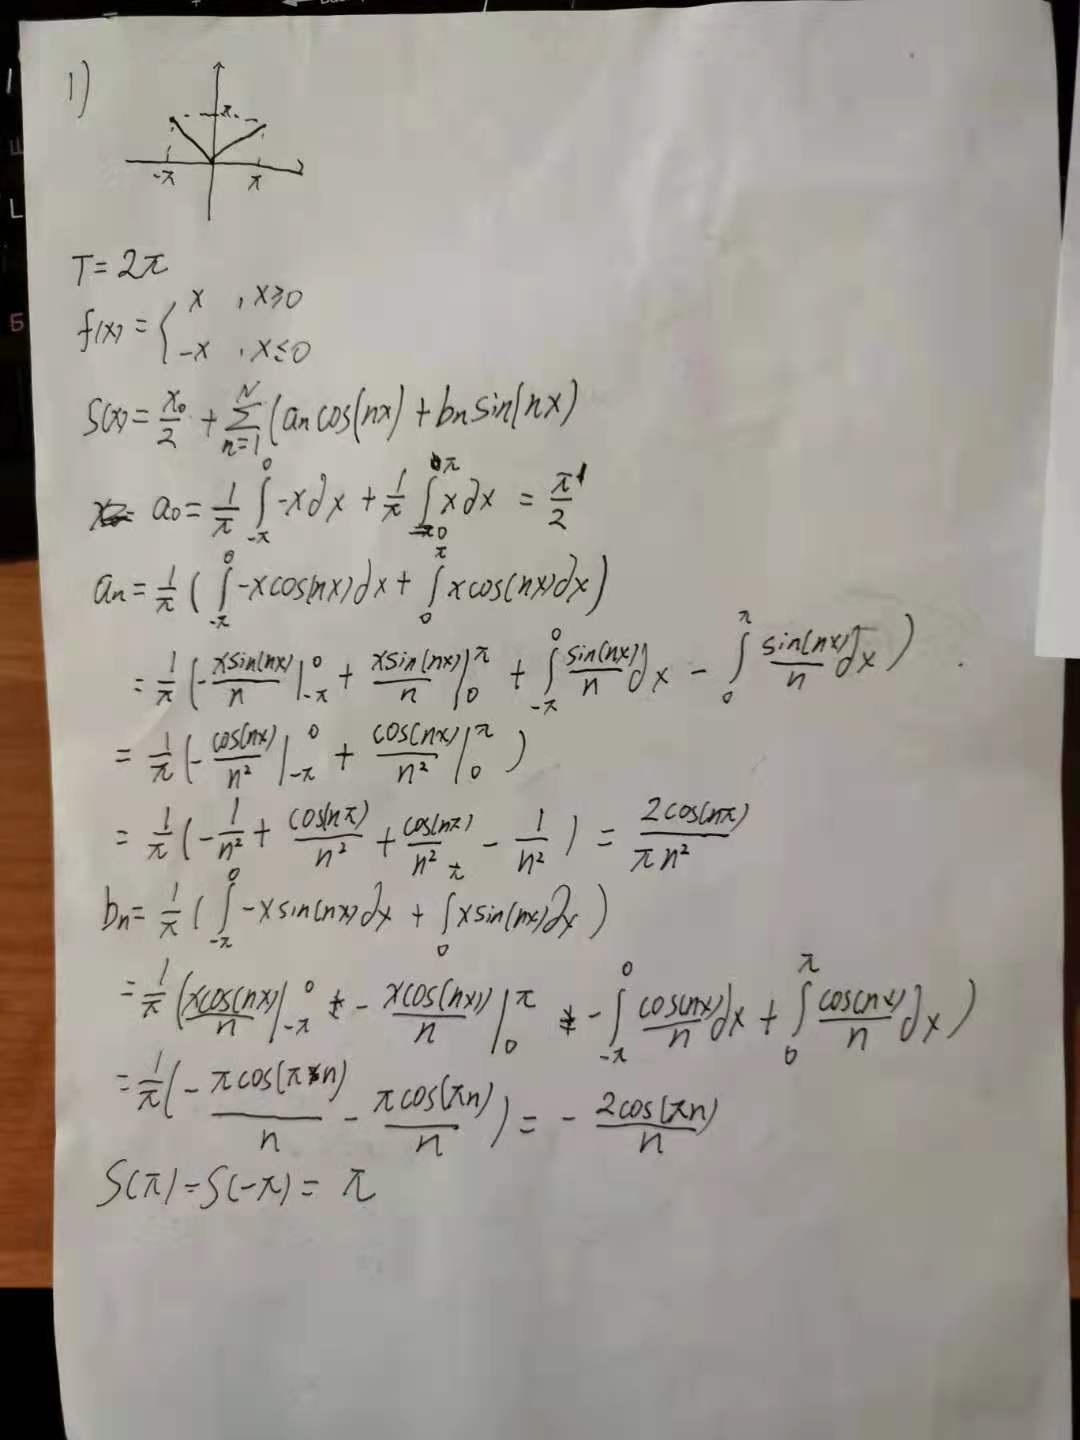 1)
π
-π π
T = 2π
f(x) = { x , x≥0
-x , x≤0
S(x) = x₀/2 + ∑_{n=1}^{N} (an cos(nx) + bn sin(nx)
a₀ = 1/π ∫_{-π}^{0} -x dx + 1/π ∫_{0}^{π} x dx = π/2
an = 1/π ( ∫_{-π}^{0} -x cos(nx) dx + ∫_{0}^{π} x cos(nx) dx )
= 1/π ( - x sin(nx)/n |_{-π}^{0} + x sin(nx)/n |_{0}^{π} + ∫_{-π}^{0} sin(nx)/n dx - ∫_{0}^{π} sin(nx)/n dx )
= 1/π ( - cos(nx)/n² |_{-π}^{0} + cos(nx)/n² |_{0}^{π} )
= 1/π ( - 1/n² + cos(nπ)/n² + cos(nπ)/n² - 1/n² ) = 2cos(nπ)/πn²
bn = 1/π ( ∫_{-π}^{0} -x sin(nx) dx + ∫_{0}^{π} x sin(nx) dx )
= 1/π ( x cos(nx)/n |_{-π}^{0} - x cos(nx))/n |_{0}^{π} - ∫_{-π}^{0} cos(nx)/n dx + ∫_{0}^{π} cos(nx)/n dx )
= 1/π ( - π cos(π n)/n - π cos(πn)/n ) = - 2cos(πn)/n
S(π) = S(-π) = π